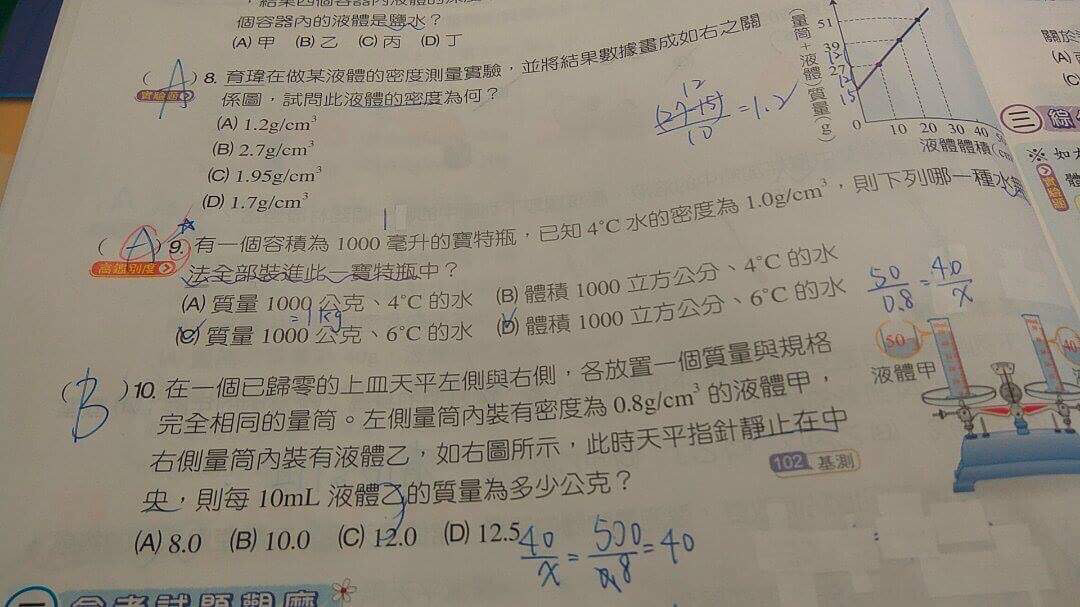 個容器內的液體是鹽水？
(A) 甲 (B) 乙 (C) 丙 (D) 丁
( A ) 8. 育瑋在做某液體的密度測量實驗，並將結果數據畫成如右之關
實驗題
係圖，試問此液體的密度為何？
(A) 1.2g/cm³
(B) 2.7g/cm³
(C) 1.95g/cm³
(D) 1.7g/cm³
12
(27-15)/10 = 1.2
(量筒+液體)質量(g)
51
39
12
27
12
15
0 10 20 30 40
液體體積
( A ) 9. 有一個容積為 1000 毫升的寶特瓶，已知 4℃ 水的密度為 1.0g/cm³，則下列哪一種水無
高鑑別度
法全部裝進此一寶特瓶中？
(A) 質量 1000 公克、4℃ 的水 (B) 體積 1000 立方公分、4℃ 的水
=1kg
(C) 質量 1000 公克、6℃ 的水 (D) 體積 1000 立方公分、6℃ 的水
50/0.8 = 40/x
( B ) 10. 在一個已歸零的上皿天平左側與右側，各放置一個質量與規格
完全相同的量筒。左側量筒內裝有密度為 0.8g/cm³ 的液體甲，
右側量筒內裝有液體乙，如右圖所示，此時天平指針靜止在中
央，則每 10mL 液體乙的質量為多少公克？
102 基測
(A) 8.0 (B) 10.0 (C) 12.0 (D) 12.5
50
40
液體甲
40/x = 500/0.8 = 40
三 綜
※ 如
實驗題
體
關於
(A)
(C)